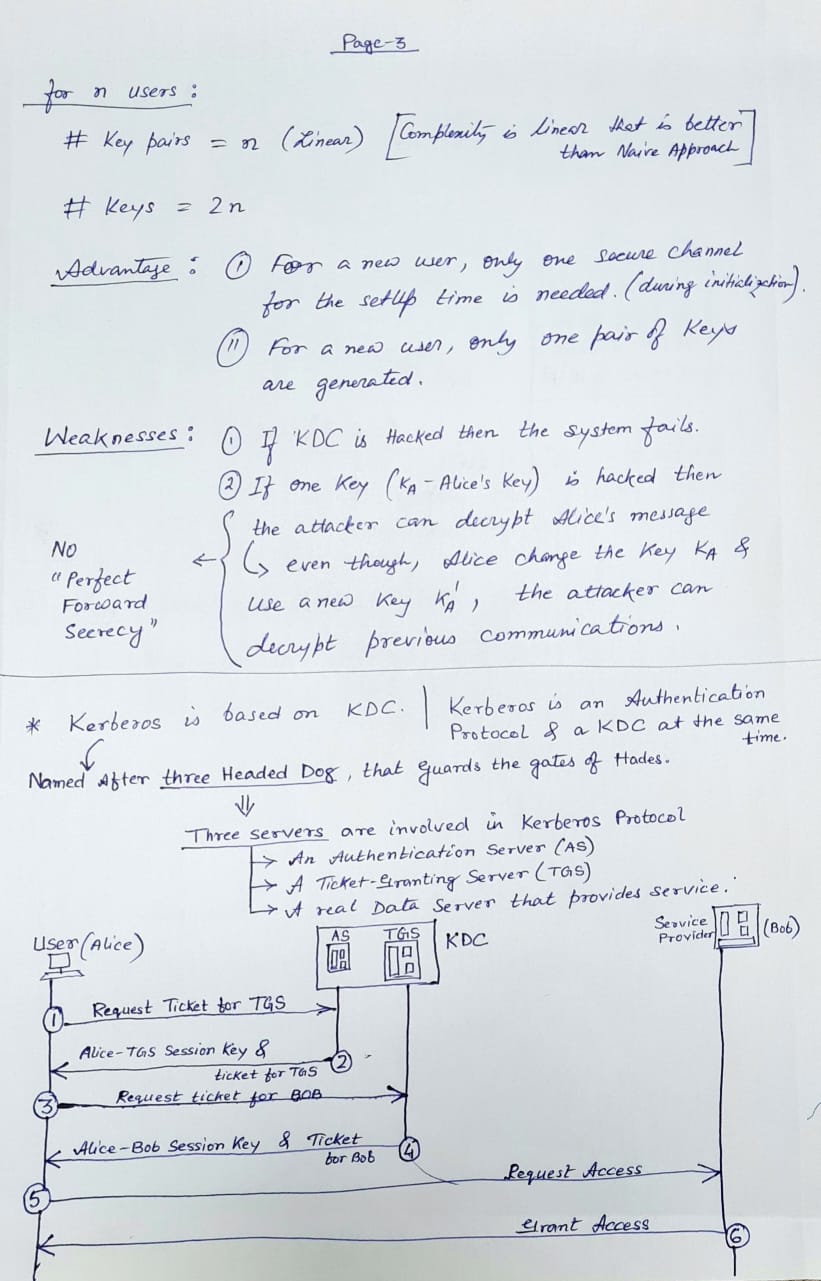 Page-3
for n users :
# Key pairs = n (Linear) [Complexity is linear that is better
than Naive Approach]
# Keys = 2n
Advantage : (i) For a new user, only one secure channel
for the setUp time is needed. (during initialization).
(ii) For a new user, only one pair of Keys
are generated.
Weaknesses : (1) If KDC is Hacked then the system fails.
(2) If one Key (KA - Alice's Key) is hacked then
the attacker can decrypt Alice's message
↳ even though, Alice change the Key KA &
use a new Key KA', the attacker can
decrypt previous communications.
No
"Perfect
Forward
Secrecy"
* Kerberos is based on KDC. | Kerberos is an Authentication
Protocol & a KDC at the same
time.
Named After three Headed Dog, that guards the gates of Hades.
⇓
Three servers are involved in Kerberos Protocol
→ An Authentication Server (AS)
→ A Ticket-Granting Server (TGS)
→ A real Data Server that provides service.
User (Alice)
AS TGS KDC
Service
Provider (Bob)
1 Request Ticket for TGS
Alice-TGS Session Key &
ticket for TGS 2
3 Request ticket for BOB
Alice-Bob Session Key & Ticket
for Bob 4
5 Request Access
Grant Access 6